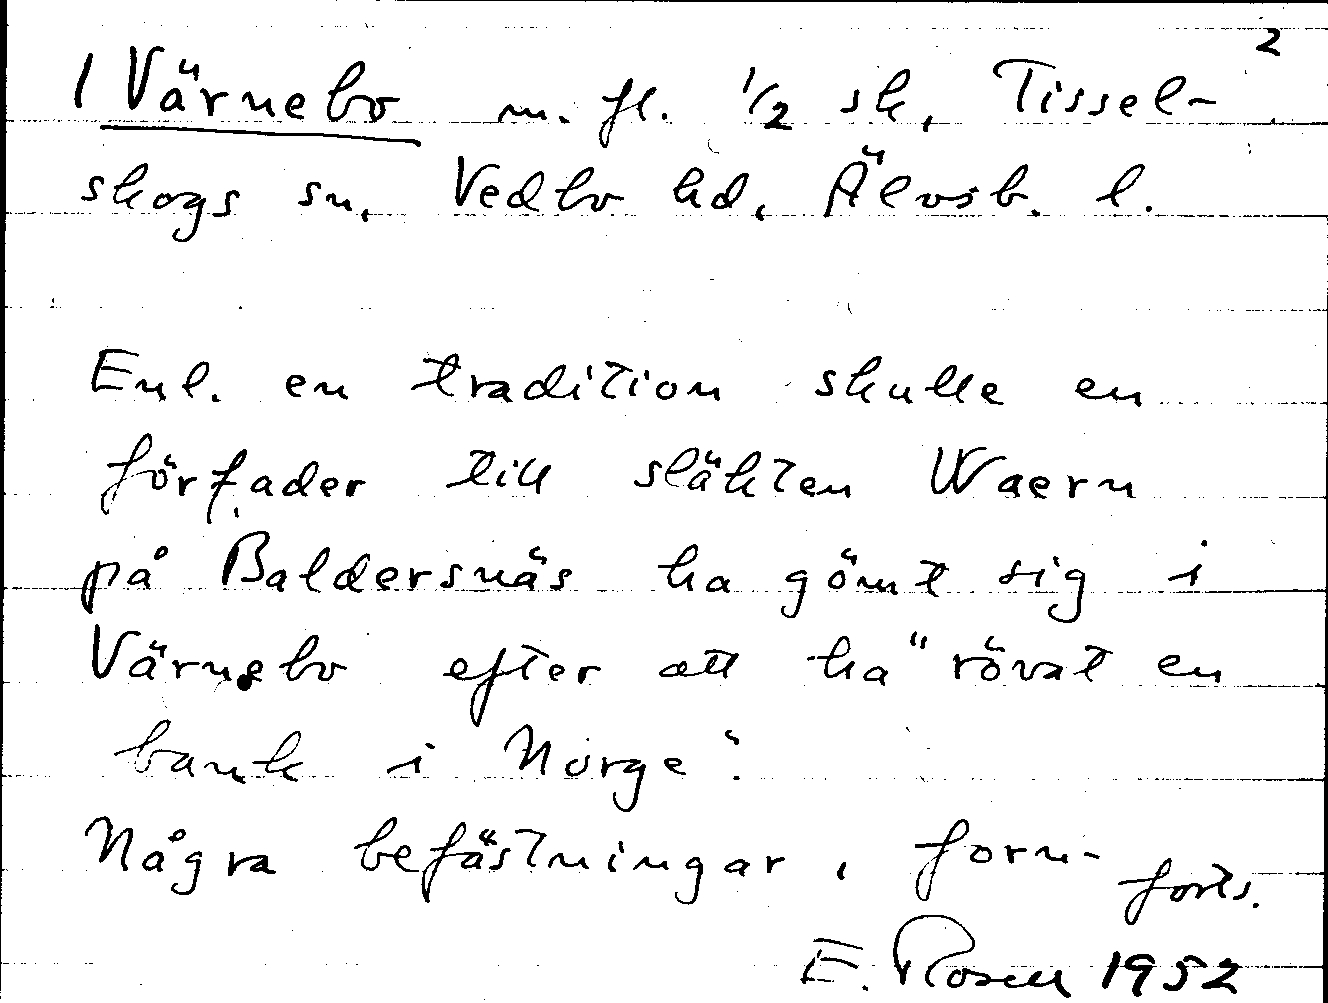 2
1 Värnebo m. fl. 1/2 sk, Tissel-
skogs sn, Vedbo hd, Älvsb. l.
Enl. en tradition skulle en
förfader till släkten Waern
på Baldersnäs ha gömt sig i
Värnebo efter att ha "rövat en
bank i Norge".
Några befästningar, forn-
forts.
E. Rosen 1952